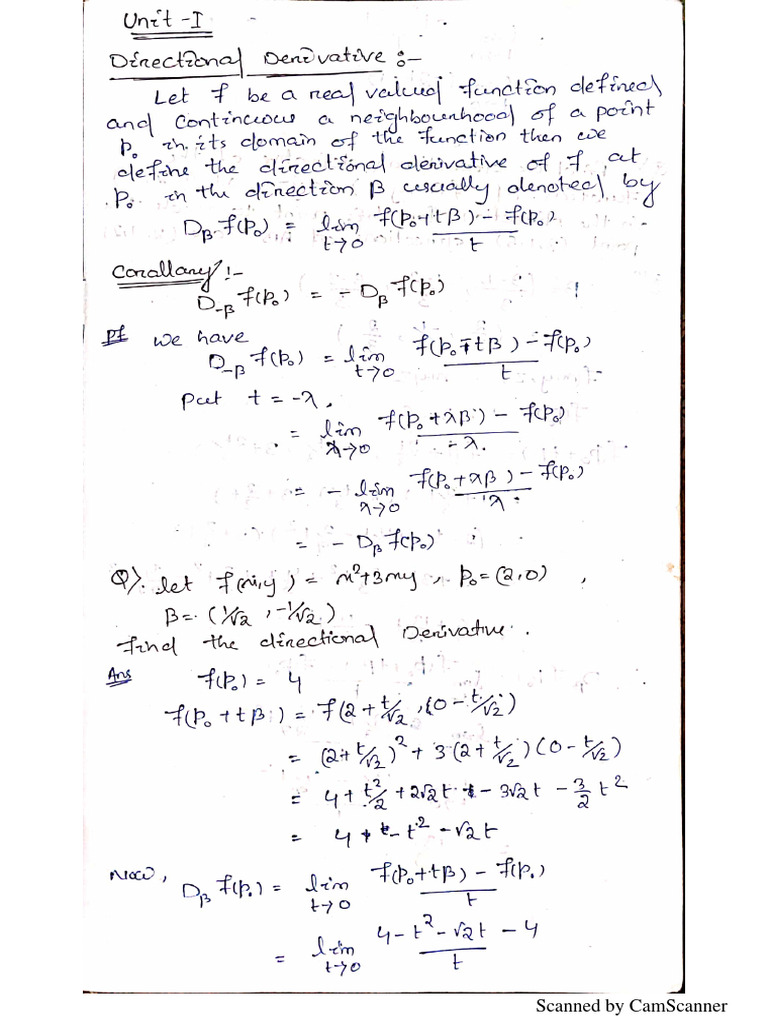 Unit - I
Directional Derivative :-
Let f be a real valued function defined
and continuous a neighbourhood of a point
p₀ in its domain of the function then we
define the directional derivative of f at
p₀ in the direction β usually denoted by
D_β f(p₀) = lim_{t→0} (f(p₀+tβ) - f(p₀))/t
Corollary :-
D_{-β} f(p₀) = - D_β f(p₀)
Pf we have
D_{-β} f(p₀) = lim_{t→0} (f(p₀-tβ) - f(p₀))/t
Put t = -λ,
= lim_{λ→0} (f(p₀+λβ) - f(p₀))/-λ
= - lim_{λ→0} (f(p₀+λβ) - f(p₀))/λ
= - D_β f(p₀)
Q>. let f(x,y) = x²+3xy, p₀=(2,0),
β = (1/√2, -1/√2)
Find the directional Derivative.
Ans f(p₀) = 4
f(p₀+tβ) = f(2+t/√2, (0-t/√2)
= (2+t/√2)² + 3(2+t/√2)(0-t/√2)
= 4 + t²/2 + 2√2t - 3√2t - 3/2 t²
= 4 - t² - √2t
Now, D_β f(p₀) = lim_{t→0} (f(p₀+tβ) - f(p₀))/t
= lim_{t→0} (4 - t² - √2t - 4)/t
Scanned by CamScanner